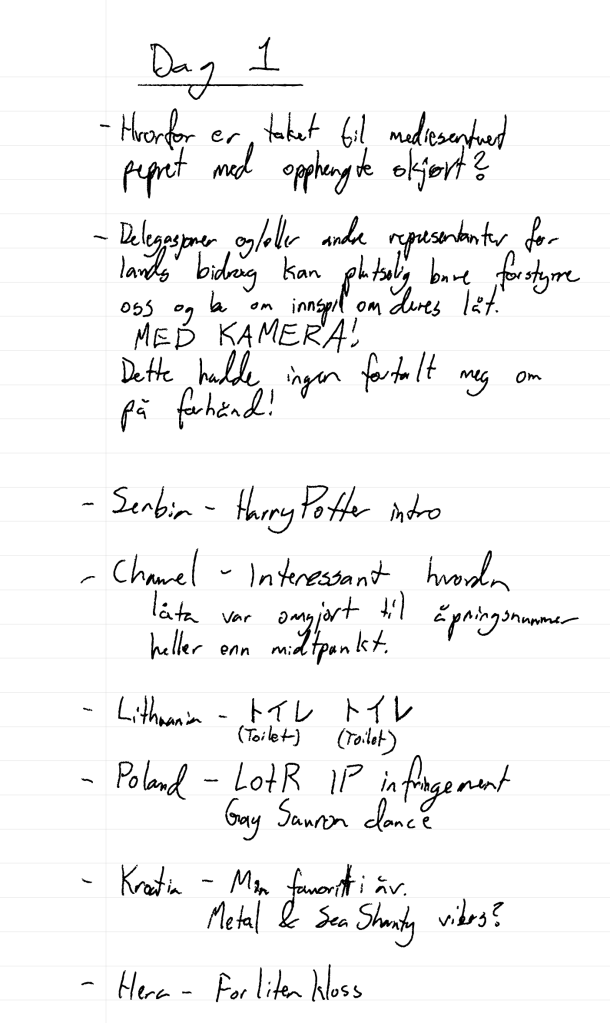 Dag 1
- Hvorfor er taket til mediesenteret
pepret med opphengte skjørt?
- Delegasjoner og/eller andre representanter for
lands bidrag kan plutselig bare forstyrre
oss og be om innspill om deres låt.
MED KAMERA!
Dette hadde ingen fortalt meg om
på forhånd!
- Serbia - Harry Potter intro
- Chanel - Interessant hvordan
låta var omgjort til åpningsnummer
heller enn midtpunkt.
- Lithuania - トイレ トイレ
(Toilet) (Toilet)
- Poland - LotR IP infringement
Gay Sauron dance
- Kroatia - Min favoritt i år.
Metal & Sea Shanty vibes?
- Hera - For liten kloss